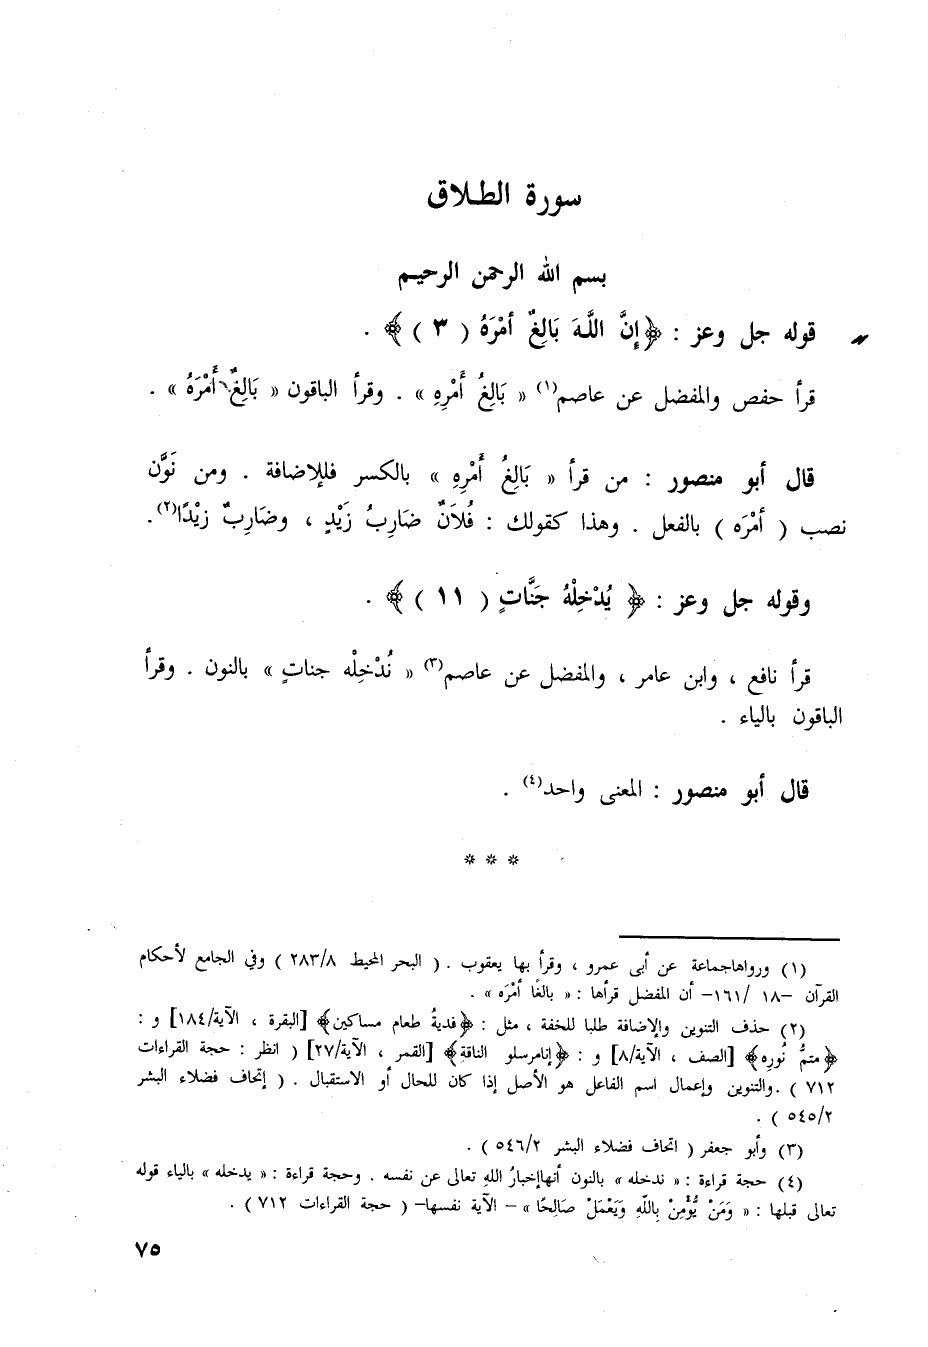 سورة الطلاق
بسم الله الرحمن الرحيم
قوله جل وعز : ﴿إِنَّ اللَّهَ بَالِغٌ أمْرَهُ ( ٣ )﴾ .
قرأ حفص والمفضل عن عاصم(١) « بَالِغُ أَمْرِهِ » . وقرأ الباقون « بَالِغٌ أَمْرَهُ » .
قال أبو منصور : من قرأ « بَالِغُ أَمْرِهِ » بالكسر فللإضافة . ومن نَوَّن
نصب ( أمْرَه ) بالفعل . وهذا كقولك : فُلاَنٌ ضَارِبُ زَيْدٍ ، وضَارِبٌ زيْدًا(٢).
وقوله جل وعز : ﴿ يُدْخِلْهُ جَنَّاتٍ ( ١١ )﴾ .
قرأ نافع ، وابن عامر ، والمفضل عن عاصم(٣) « نُدْخِلْه جناتٍ » بالنون . وقرأ
الباقون بالياء .
قال أبو منصور : المعنى واحد(٤) .
* * *
(١) ورواهاجماعة عن أبى عمرو ، وقرأ بها يعقوب . ( البحر المحيط ٢٨٣/٨ ) وفي الجامع لأحكام
القرآن -١٨ /١٦١- أن المفضل قرأها : « بالغًا أمْرَه » .
(٢) حذف التنوين والإضافة طلبا للخفة ، مثل : ﴿فديةُ طعام مساكين﴾ [البقرة ، الآية/١٨٤] و :
﴿متمُّ نُورِه﴾ [الصف ، الآية/٨] و : ﴿إنامرسلو الناقةِ﴾ [القمر ، الآية/٢٧] ( انظر : حجة القراءات
٧١٢ ) .والتنوين وإعمال اسم الفاعل هو الأصل إذا كان للحال أو الاستقبال . ( إتحاف فضلاء البشر
٥٤٥/٢ ) .
(٣) وأبو جعفر ( اتحاف فضلاء البشر ٥٤٦/٢ ) .
(٤) حجة قراءة : « ندخله » بالنون أنهاإخبارُ اللهِ تعالى عن نفسه . وحجة قراءة : « يدخله » بالياء قوله
تعالى قبلها : « وَمَنْ يُؤْمِنْ بِاللَّهِ وَيَعْمَلْ صَالِحًا » - الآية نفسها- ( حجة القراءات ٧١٢ ) .
٧٥